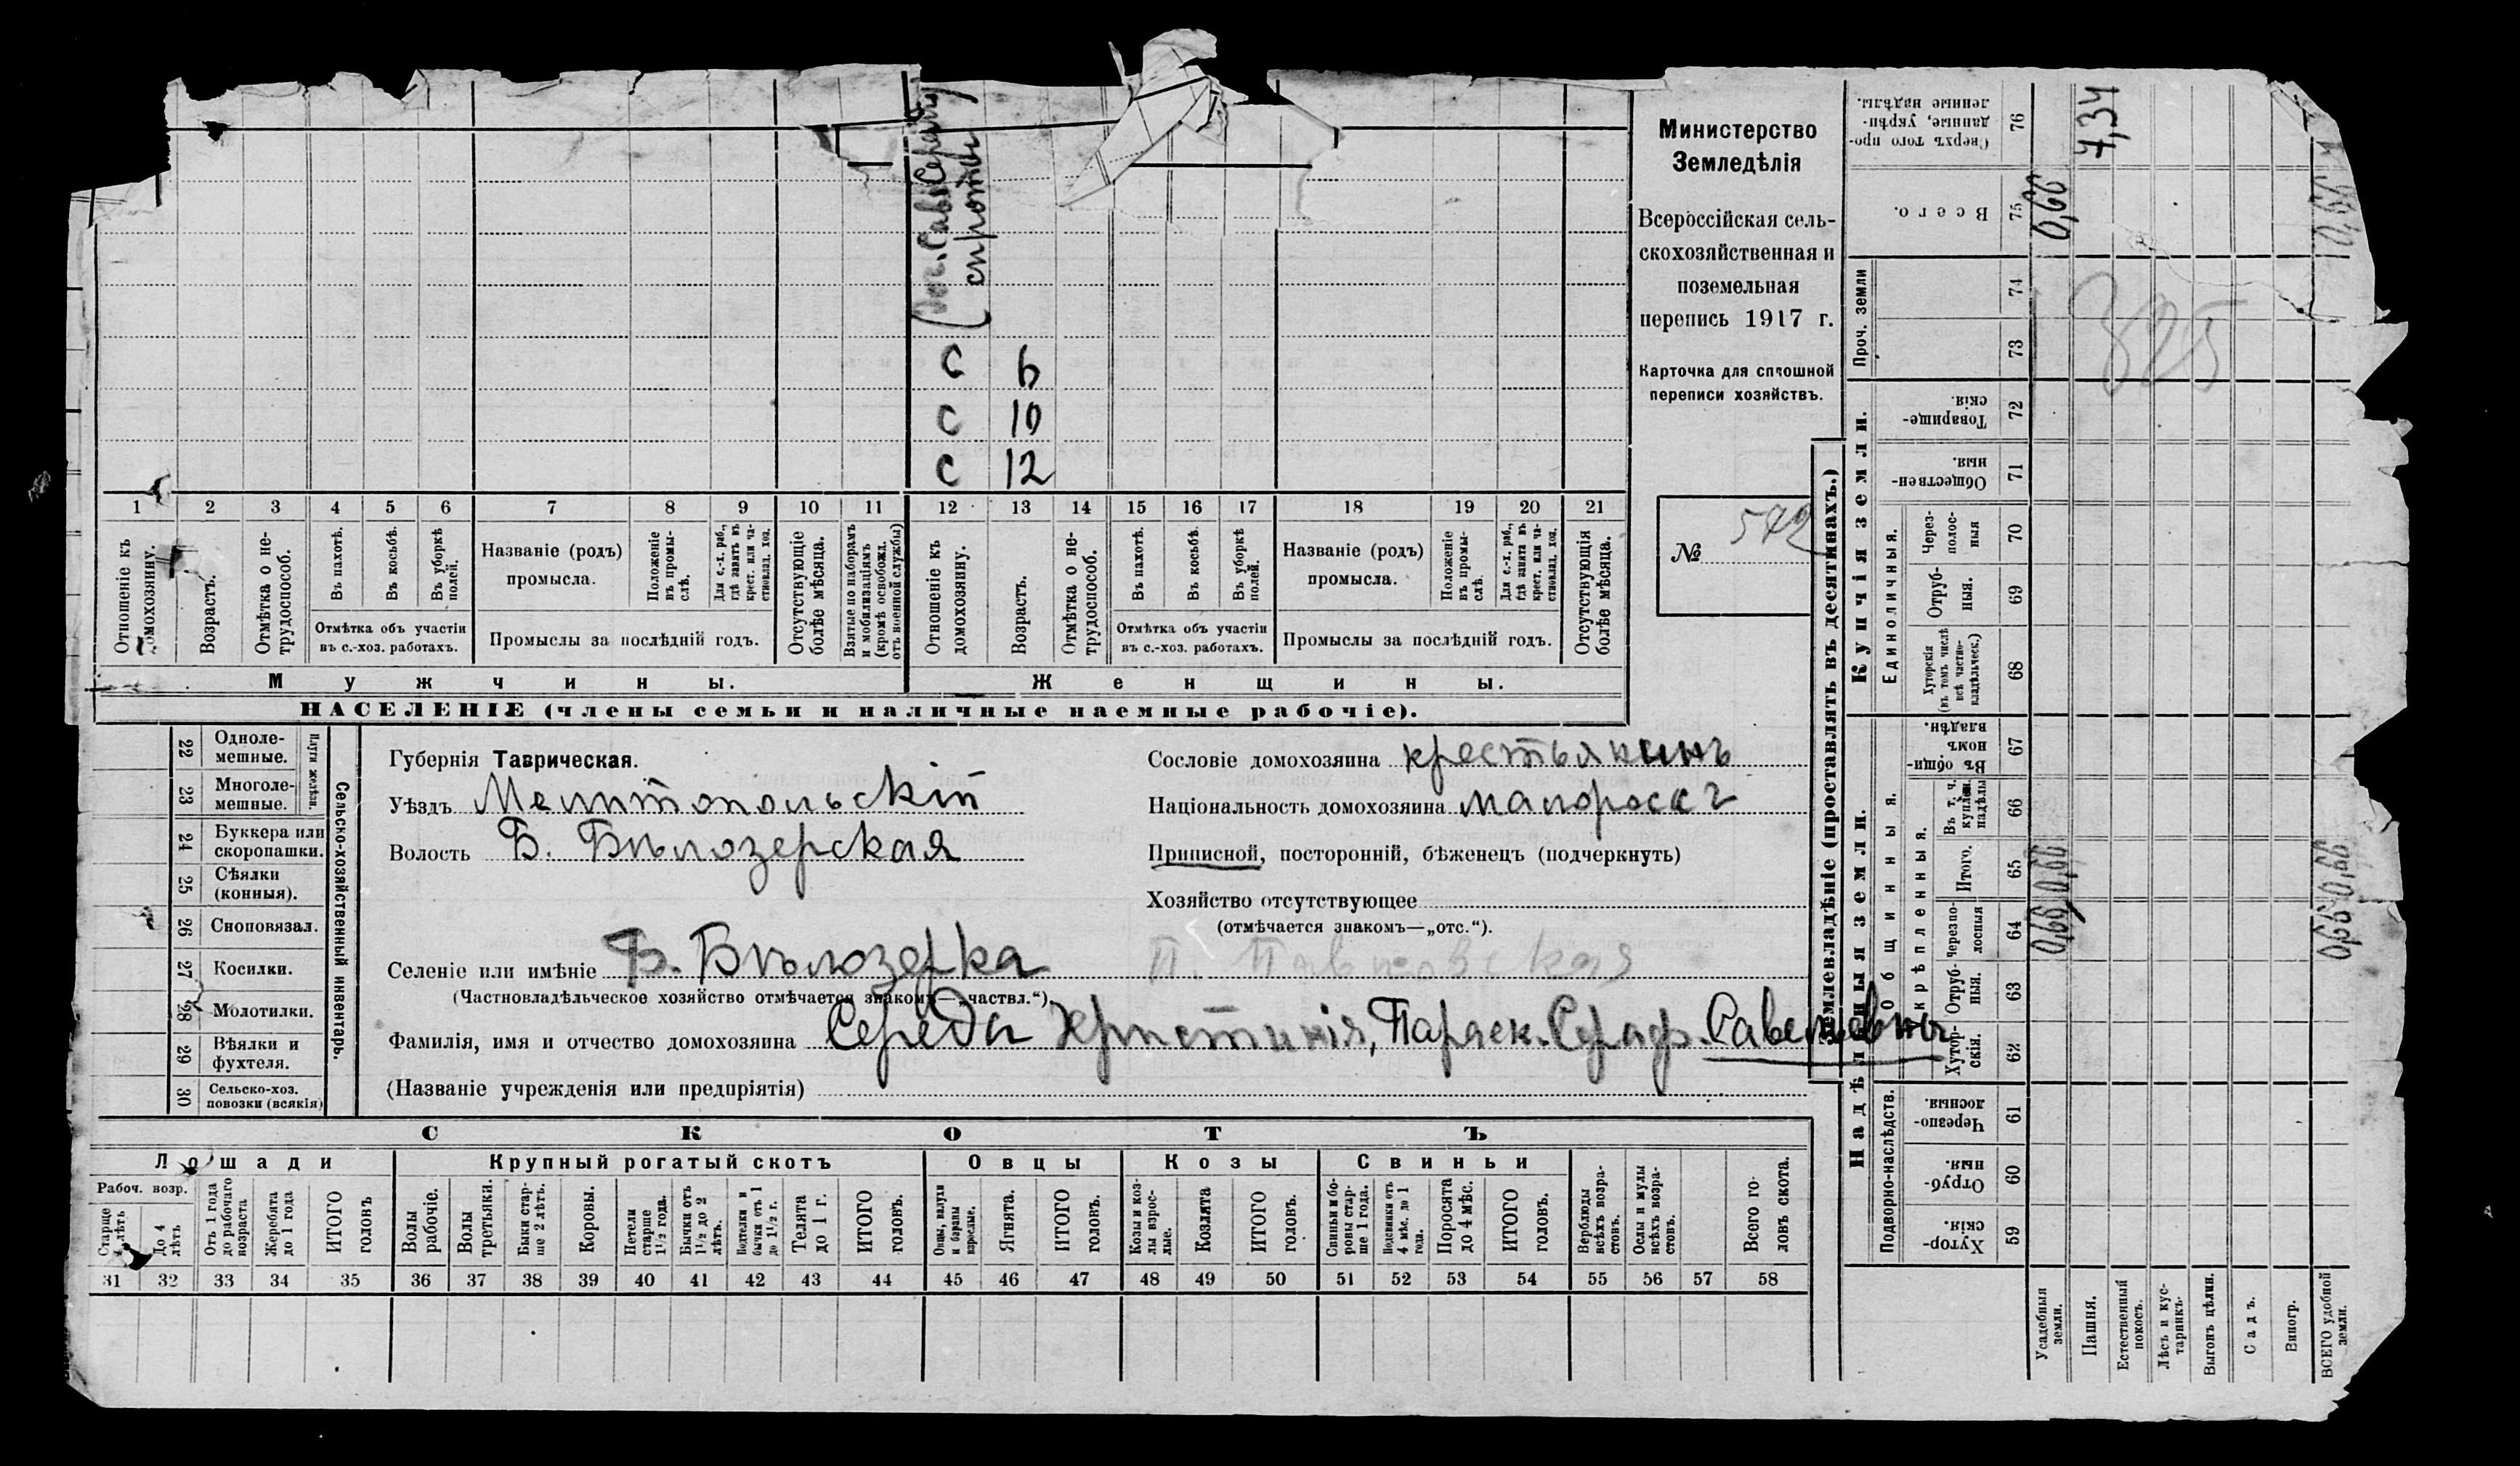 Министерство
Земледѣлія
Всероссійская сель-
скохозяйственная и
поземельная
перепись 1917 г.
Карточка для сплошной
переписи хозяйствъ.
№ 542
Сав. Середы
сироты
С 6
С 10
С 12
1 2 3 4 5 6 7 8 9 10 11 12 13 14 15 16 17 18 19 20 21
Отношеніе къ домохозяину.
Возрастъ.
Отмѣтка о не-трудоспособ.
Въ пахотѣ.
Въ косьбѣ.
Въ уборкѣ полей.
Отмѣтка объ участіи
въ с.-хоз. работахъ.
Названіе (родъ)
промысла.
Положеніе въ промы-слѣ.
Для с.-х. раб., гдѣ занятъ въ крест. или ча-стновлад. хоз.
Промыслы за послѣдній годъ.
Отсутствующіе болѣе мѣсяца.
Взятые по наборамъ и мобилизаціямъ (кромѣ освобожд. отъ военной службы)
Отношеніе къ домохозяину.
Возрастъ.
Отмѣтка о не-трудоспособ.
Въ пахотѣ.
Въ косьбѣ.
Въ уборкѣ полей.
Отмѣтка объ участіи
въ с.-хоз. работахъ.
Названіе (родъ)
промысла.
Положеніе въ промы-слѣ.
Для с.-х. раб., гдѣ занята въ крест. или ча-стновлад. хоз.
Промыслы за послѣдній годъ.
Отсутствующія болѣе мѣсяца.
Мужчины. Женщины.
НАСЕЛЕНІЕ (члены семьи и наличные наемные рабочіе).
Сельско-хозяйственный инвентарь.
Плуги желѣзн.
22 Одноле-мешные.
23 Многоле-мешные.
24 Буккера или скоропашки.
25 Сѣялки (конныя).
26 Сноповязал.
27 Косилки.
28 Молотилки.
29 Вѣялки и фухтеля.
30 Сельско-хоз. повозки (всякія)
Губернія Таврическая.
Уѣздъ Мелитопольскій
Волость Б. Бѣлозерская
Селеніе или имѣніе Б. Бѣлозерка
(Частновладѣльческое хозяйство отмѣчается знакомъ—„частвл.“)
Сословіе домохозяина крестьянинъ
Національность домохозяина малоросс
Приписной, посторонній, бѣженецъ (подчеркнуть)
Хозяйство отсутствующее
(отмѣчается знакомъ—„отс.“).
П. Павловская
Фамилія, имя и отчество домохозяина Середа Христинія, Параск. Сераф. Савельевны
(Названіе учрежденія или предпріятія)
СКОТЪ
Лошади Крупный рогатый скотъ Овцы Козы Свиньи
Рабоч. возр.
Старше 4 лѣтъ
До 4 лѣтъ
Отъ 1 года до рабочаго возраста
Жеребята до 1 года
ИТОГО головъ
Волы рабочіе.
Волы третьяки.
Быки стар-ше 2 лѣтъ.
Коровы.
Нетели старше 1½ года.
Бычки отъ 1½ до 2 лѣтъ.
Подтелки и бычки отъ 1 до 1½ г.
Телята до 1 г.
ИТОГО головъ.
Овцы, валухи и бараны взрослые.
Ягнята.
ИТОГО головъ.
Козы и коз-лы взрос-лые.
Козлята
ИТОГО головъ.
Свиньи и бо-ровы стар-ше 1 года.
Подсвинки отъ 4 мѣс. до 1 года.
Поросята до 4 мѣс.
ИТОГО головъ.
Верблюды всѣхъ возра-стовъ.
Ослы и мулы всѣхъ возра-стовъ.
Всего го-ловъ скота.
31 32 33 34 35 36 37 38 39 40 41 42 43 44 45 46 47 48 49 50 51 52 53 54 55 56 57 58
Землевладѣніе (проставлять въ десятинахъ.)
Надѣльныя земли.
Купчія земли.
Проч. земли
Подворно-наслѣдств.
Общинныя.
Укрѣпленныя.
Единоличныя.
59 Хутор-скія.
60 Отруб-ныя.
61 Черезпо-лосныя.
62 Хутор-скія.
63 Отруб-ныя.
64 Черезпо-лосныя
65 Итого.
66 Въ т. ч. куплен. надѣлы
67 Въ общин-номъ владѣн.
68 Хуторскія (въ томъ числѣ всѣ частно-владѣльческ.)
69 Отруб-ныя.
70 Через-полос-ныя
71 Обществен-ныя.
72 Товарище-скія.
73
74
75 Всего.
76 Сверхъ того про-данные, укрѣп-ленные надѣлы.
Усадебныя земли.
Пашня.
Естественный покосъ.
Лѣсъ и кус-тарникъ.
Выгонъ цѣлин.
Садъ.
Виногр.
ВСЕГО удобной земли.
0,66 0,66 0,66
7,34
825
0,66 0,66 0,66